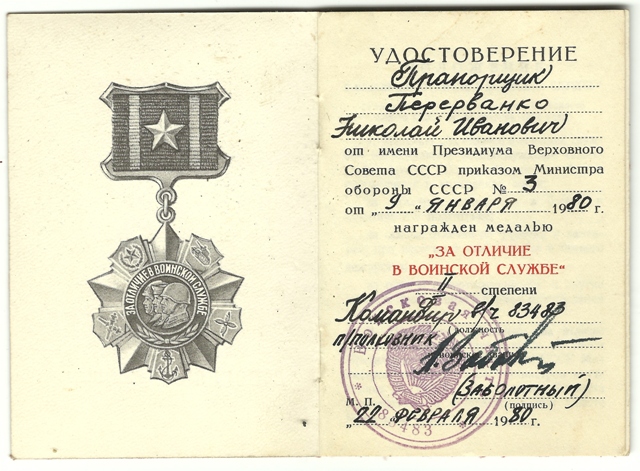 ЗА ОТЛИЧИЕ В ВОИНСКОЙ СЛУЖБЕ
УДОСТОВЕРЕНИЕ
Прапорщик
Перерванко
Николай Иванович
от имени Президиума Верховного
Совета СССР приказом Министра
обороны СССР № 3
от „9“ ЯНВАРЯ 1980 г.
награжден медалью
„ЗА ОТЛИЧИЕ
В ВОИНСКОЙ СЛУЖБЕ“
II степени
Командир в/ч 83483
(должность
п/полковник
(ЗАБОЛОТНЫЙ)
М. П. (подпись)
„22 ФЕВРАЛЯ 1980 г.